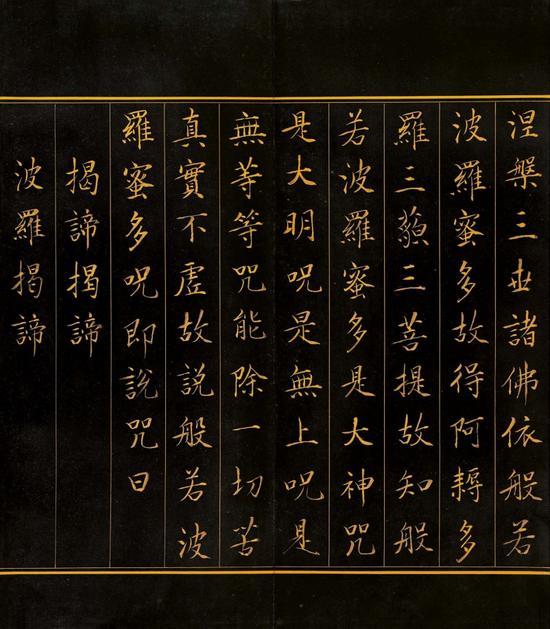 涅槃三世諸佛依般若
波羅蜜多故得阿耨多
羅三藐三菩提故知般
若波羅蜜多是大神咒
是大明呪是無上呪是
無等等咒能除一切苦
真實不虛故説般若波
羅蜜多呪即說咒曰
揭諦揭諦
波羅揭諦